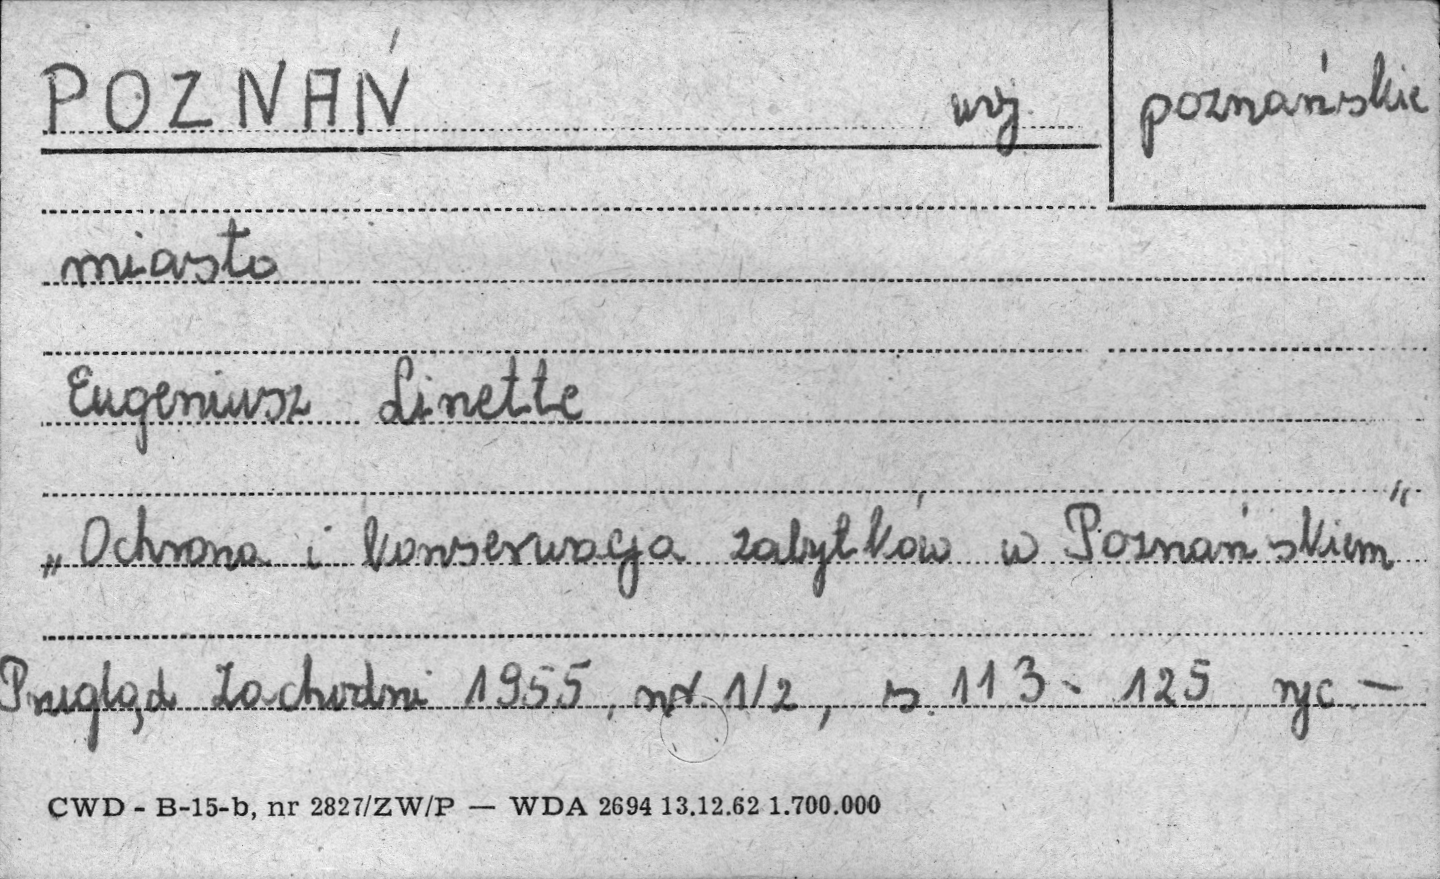 POZNAŃ woj. poznańskie
miasto
Eugeniusz Linette
„Ochrona i konserwacja zabytków w Poznańskiem"
Przegląd Zachodni 1955, nr. 1/2, s. 113 - 125 ryc —
CWD - B-15-b, nr 2827/ZW/P — WDA 2694 13.12.62 1.700.000